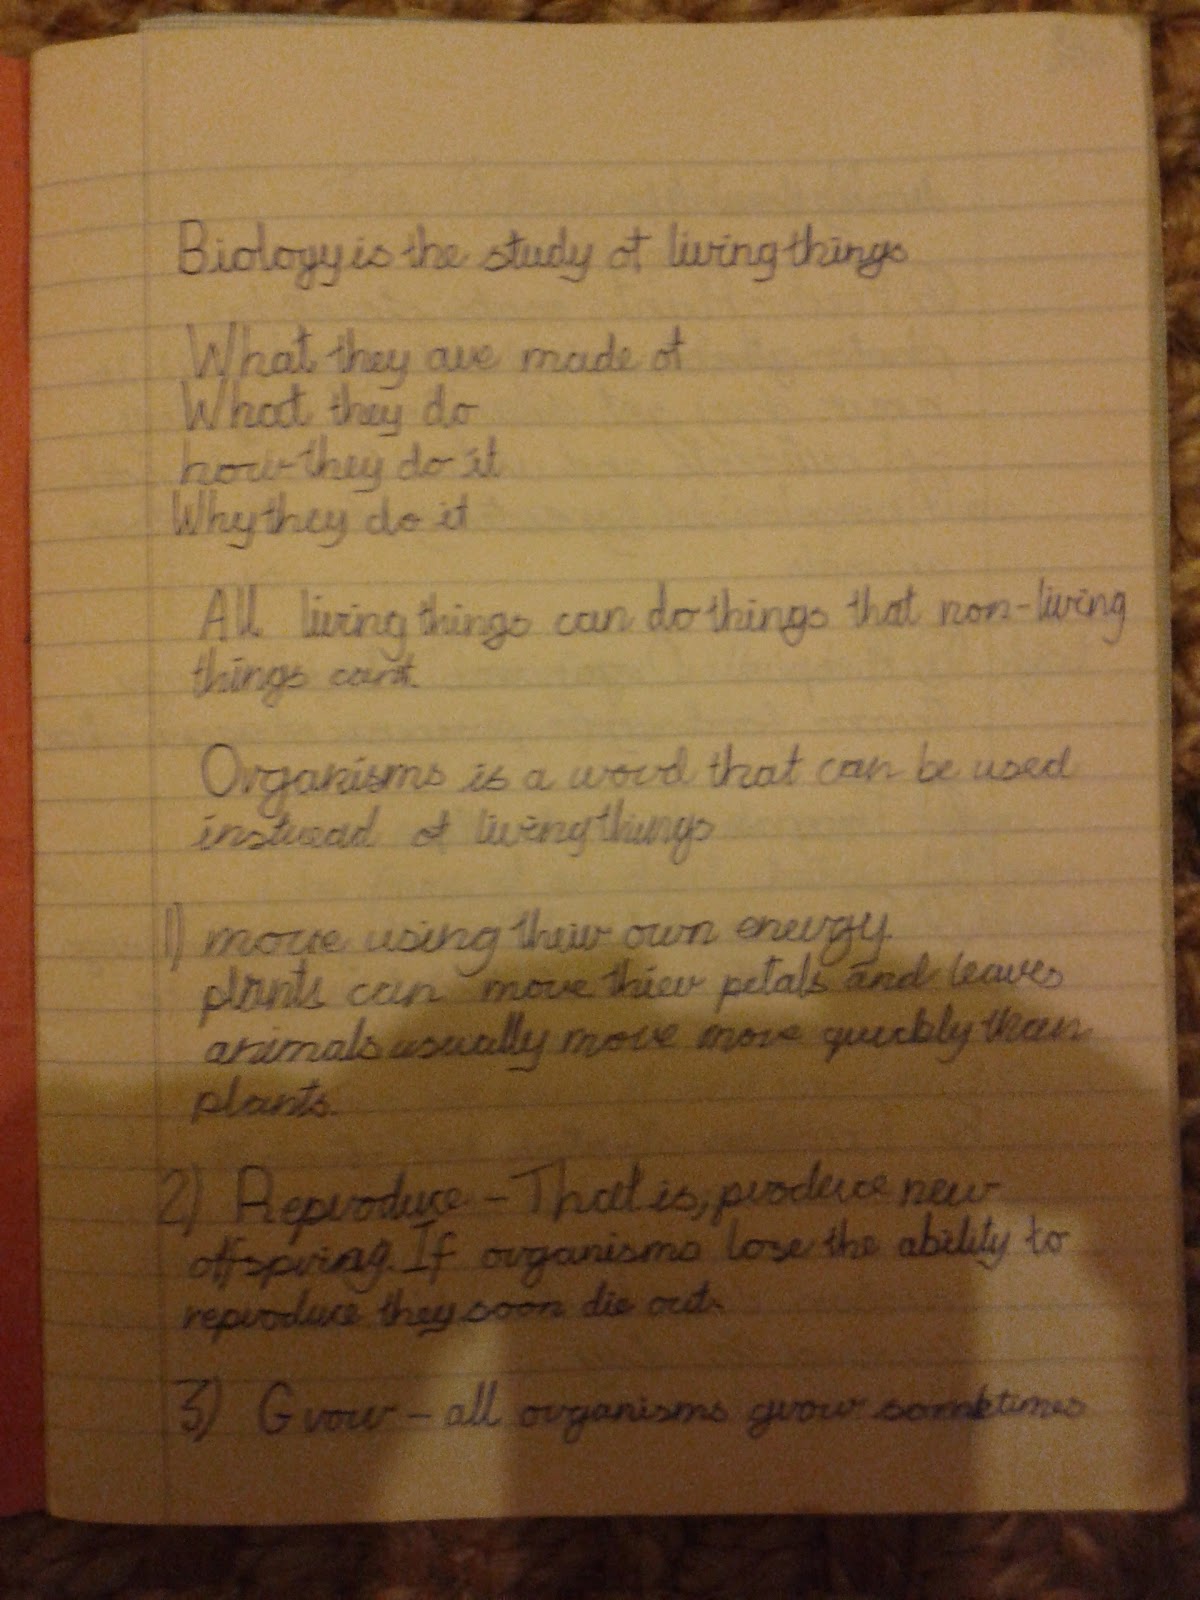 Biology is the study of living things
What they are made of
What they do
how they do it
Why they do it
All living things can do things that non-living
things can't.
Organisms is a word that can be used
instead of living things
1) move using their own energy.
plants can move thier petals and leaves
animals usually move more quickly than
plants.
2) Reproduce - That is, produce new
offspring. If organisms lose the ability to
reproduce they soon die out.
3) Grow - all organisms grow sometimes